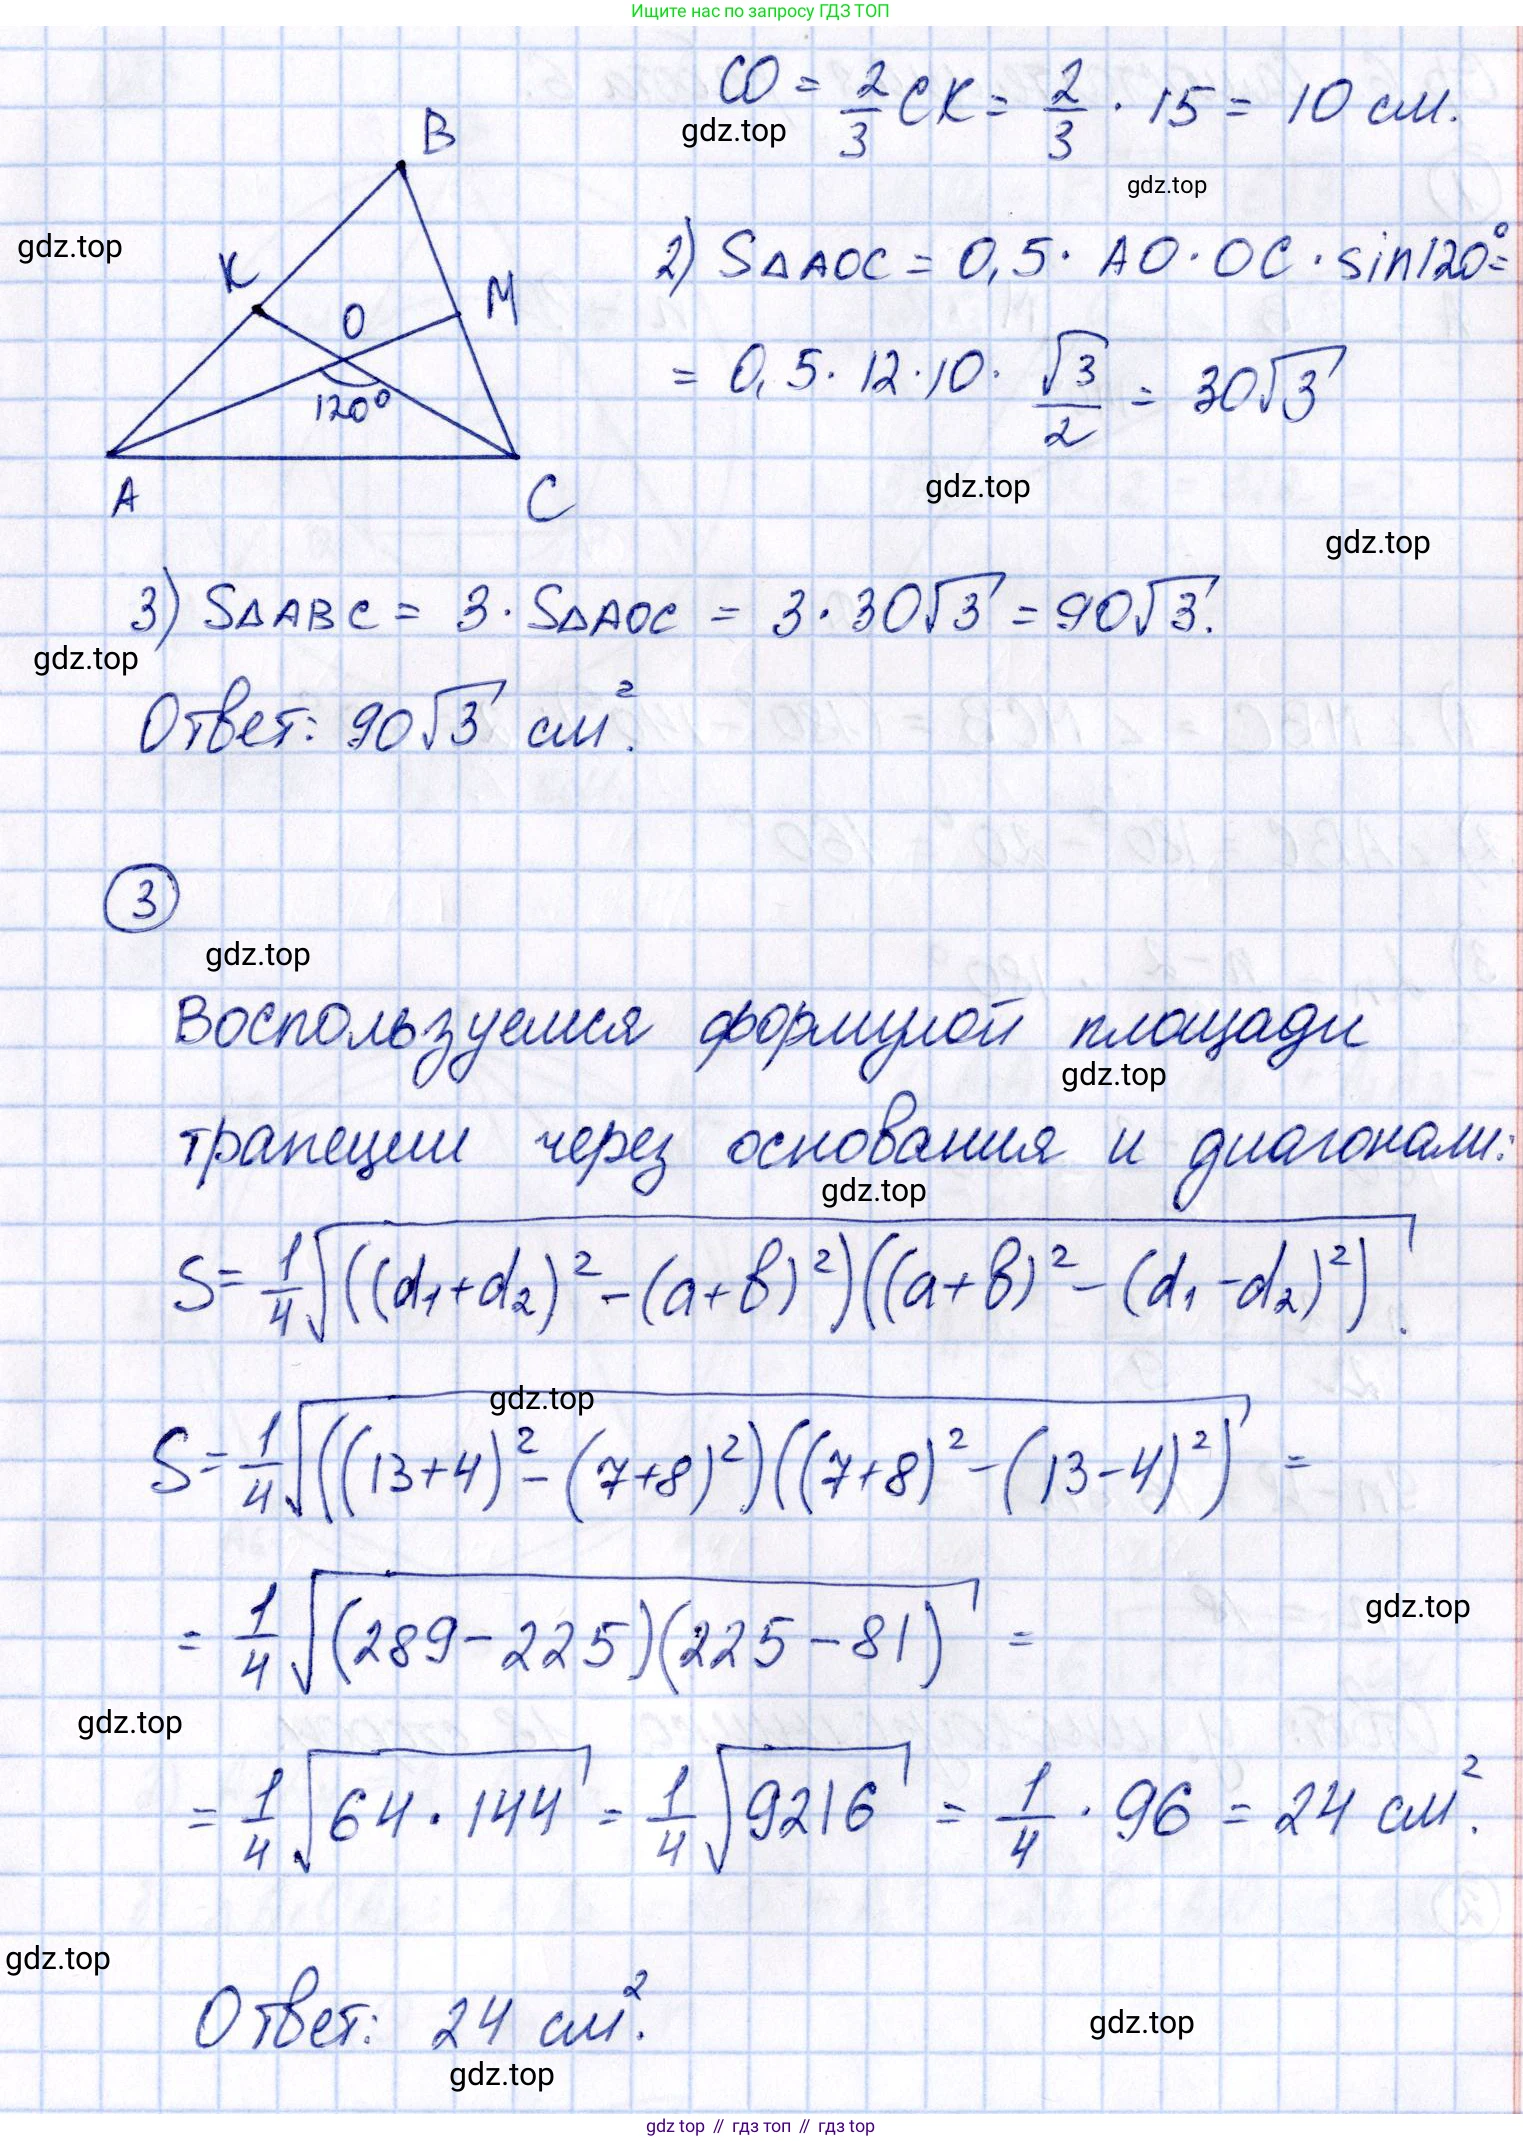 Ищите нас по запросу ГДЗ ТОП
CO = 2/3 CK = 2/3 · 15 = 10 см.
gdz.top
gdz.top
B
gdz.top
2) S△AOC = 0,5 · AO · OC · sin120° =
K
M
O
= 0,5 · 12 · 10 · √3/2 = 30√3
120°
A
C
gdz.top
gdz.top
3) S△ABC = 3 · S△AOC = 3 · 30√3 = 90√3.
gdz.top
Ответ: 90√3 см².
3
gdz.top
Воспользуемся формулой площади
gdz.top
трапеции через основания и диагонали:
gdz.top
S = 1/4 √((d₁+d₂)² − (a+b)²)((a+b)² − (d₁−d₂)²).
gdz.top
S = 1/4 √((13+4)² − (7+8)²)((7+8)² − (13−4)²) =
= 1/4 √(289−225)(225−81) =
gdz.top
gdz.top
= 1/4 √64·144 = 1/4 √9216 = 1/4 · 96 = 24 см².
gdz.top
Ответ: 24 см².
gdz.top
gdz.top
gdz top // гдз топ // гдз top